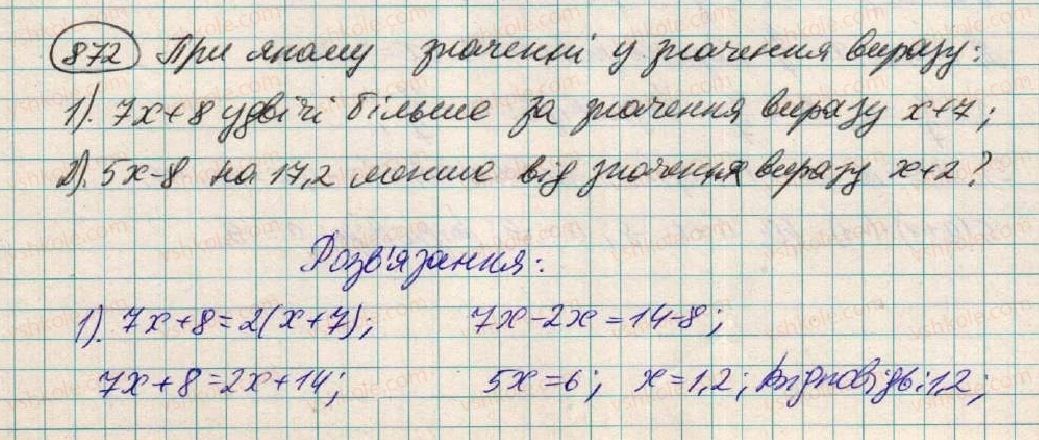 872 При якому значенні у значення виразу:
1). 7x+8 удвічі більше за значення виразу x+7;
2). 5x-8 на 17,2 менше від значення виразу x+2?
Розв'язання:
1). 7x+8=2(x+7); 7x-2x=14-8;
7x+8=2x+14; 5x=6; x=1,2; Відповідь: 1,2;